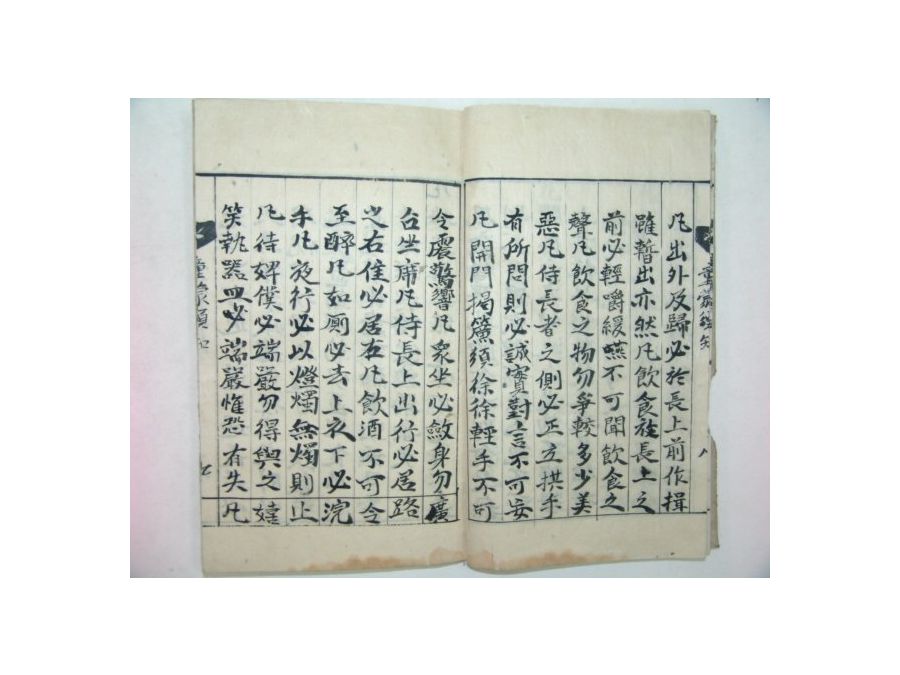 童蒙須知
八
凡出外及歸必於長上前作揖
雖暫出亦然凡飲食於長上之
前必輕嚼緩嚥不可聞飲食之
聲凡飲食之物勿爭較多少美
惡凡侍長者之側必正立拱手
有所問則必誠實對言不可妄
凡開門揭簾須徐徐輕手不可
令震驚響凡衆坐必斂身勿廣
占坐席凡侍長上出行必居路
之右住必居左凡飲酒不可令
至醉凡如厠必去上衣下必浣
手凡夜行必以燈燭無燭則止
凡待婢僕必端嚴勿得與之嬉
笑執器皿必端嚴惟恐有失凡
童蒙須知